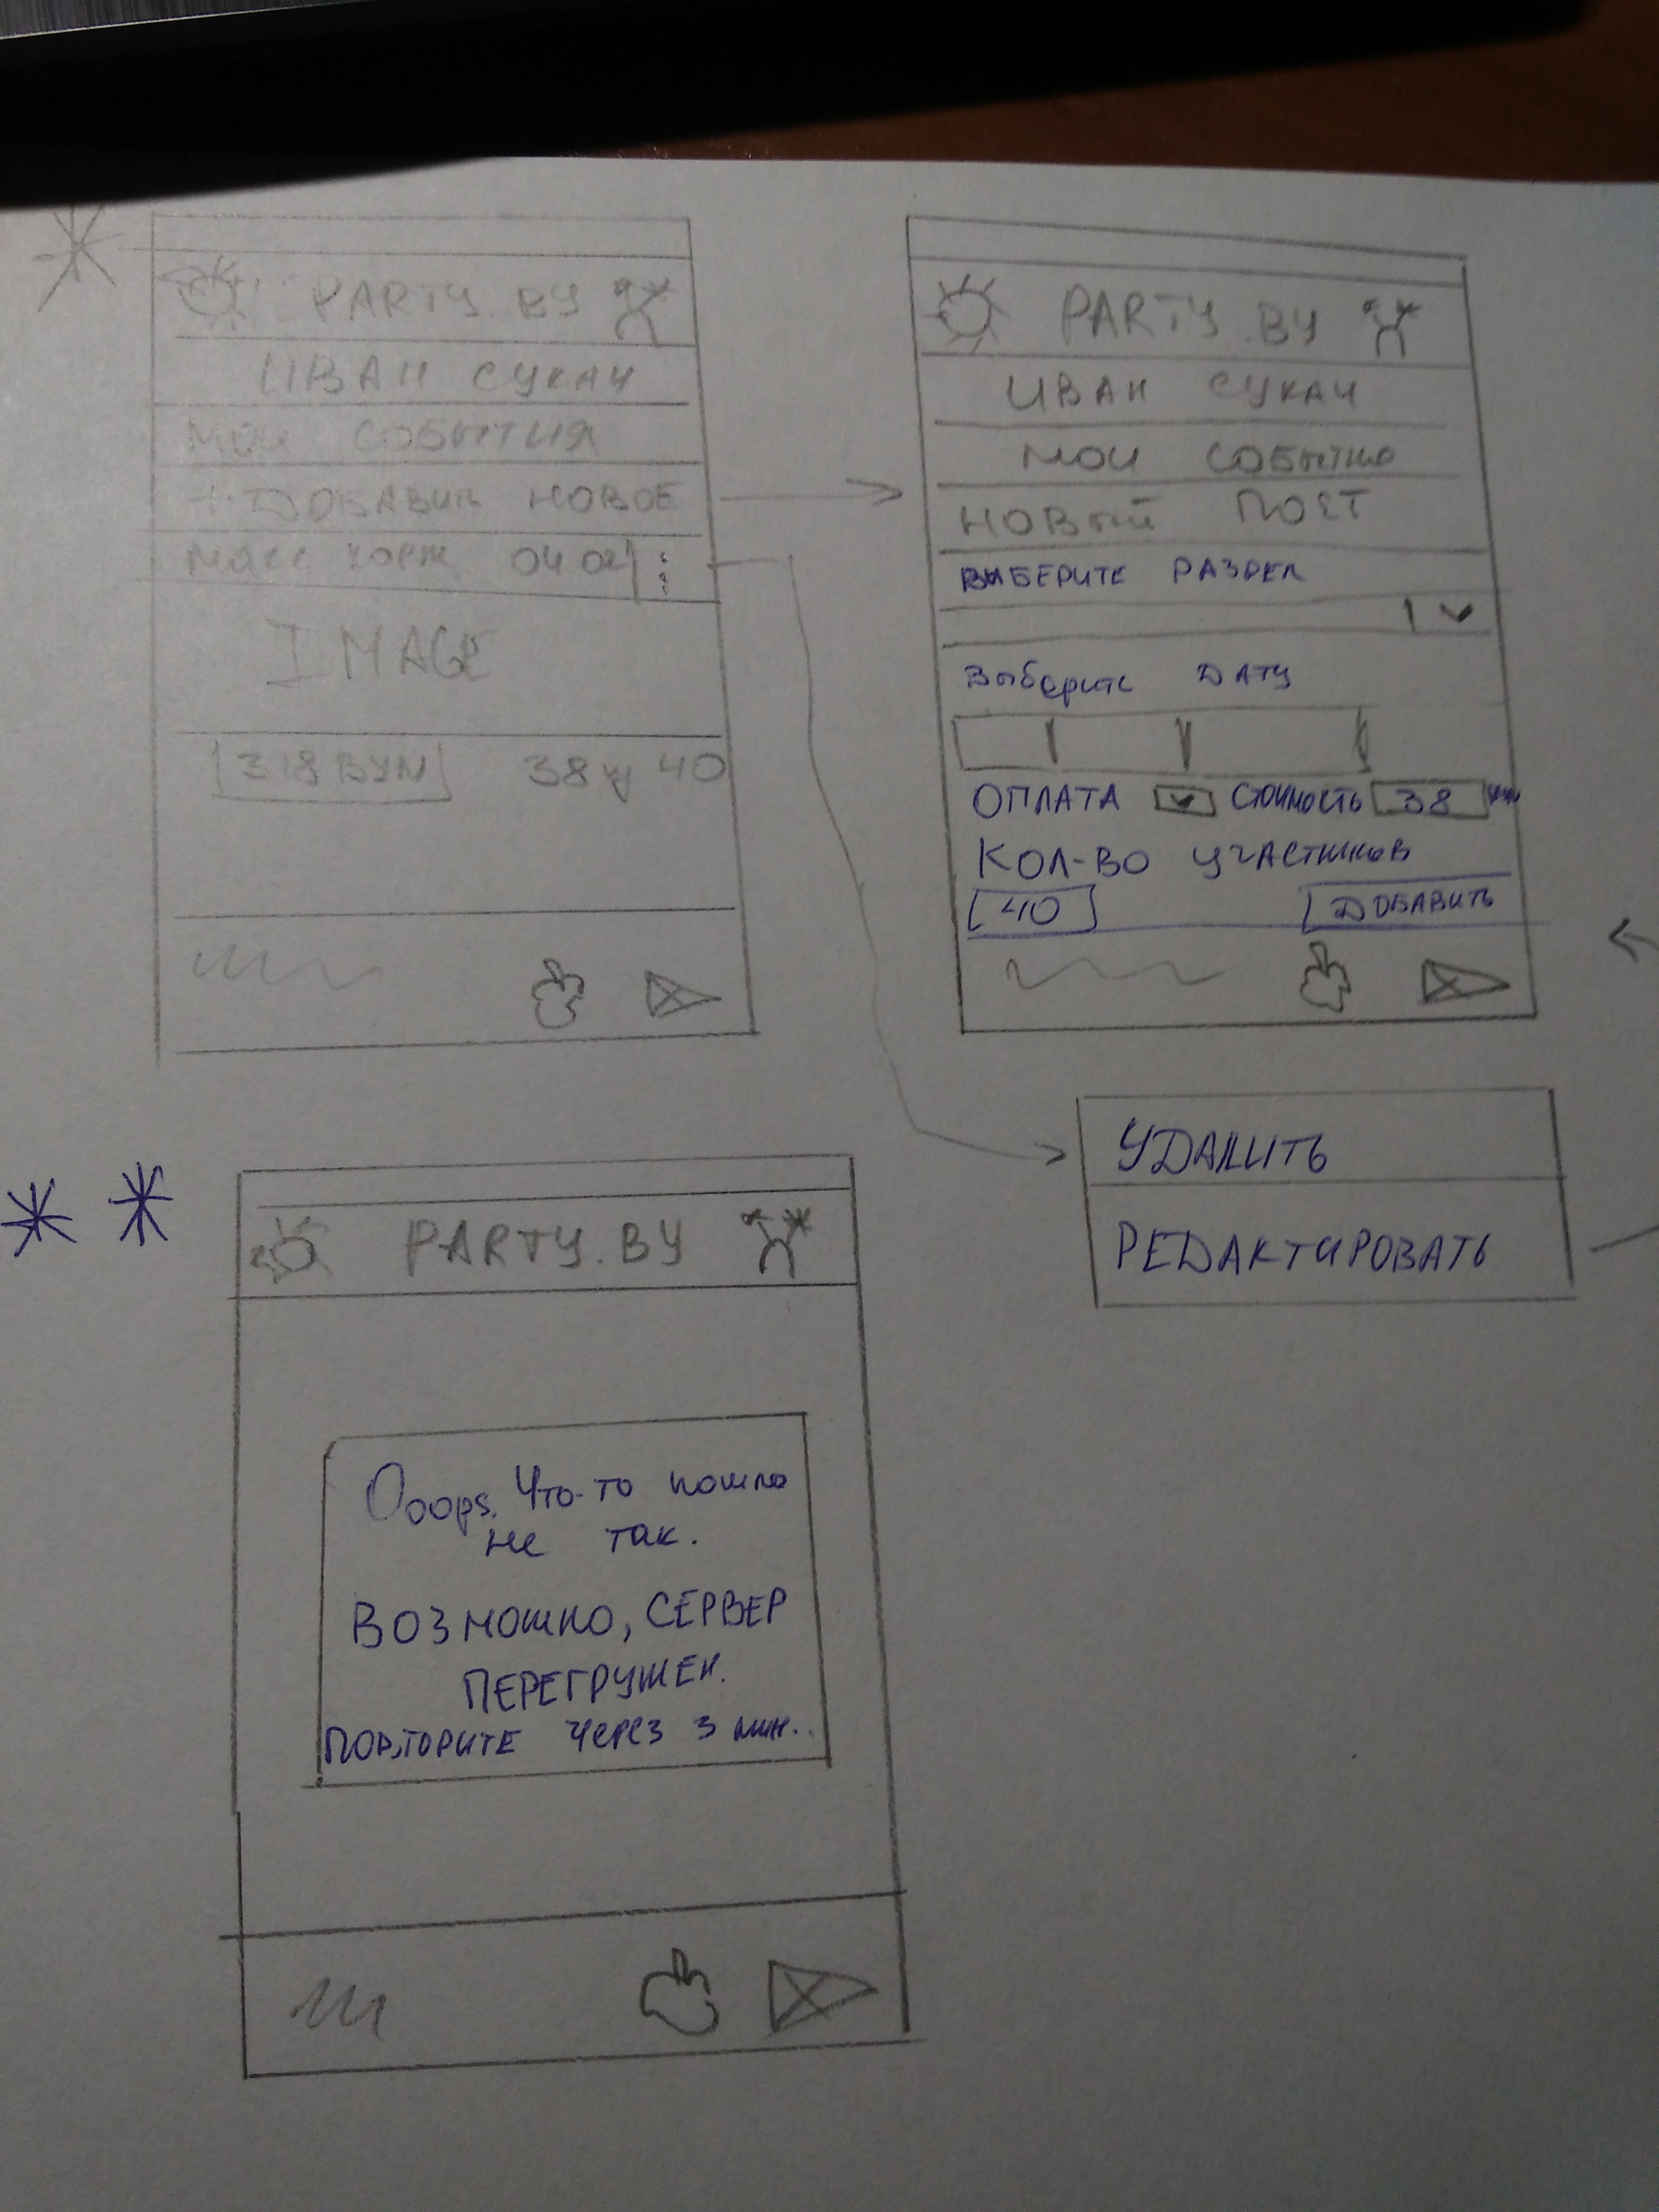 PARTY.BY
ИВАН СУКАЧ
МОИ СОБЫТИЯ
+ ДОБАВИТЬ НОВОЕ
МАКС КОРЖ 04.02 ⋮
IMAGE
318 BYN 38 из 40
PARTY.BY
ИВАН СУКАЧ
МОИ СОБЫТИЯ
НОВЫЙ ПОСТ
ВЫБЕРИТЕ РАЗДЕЛ
Выберите ДАТУ
ОПЛАТА СТОИМОСТЬ 38
КОЛ-ВО УЧАСТНИКОВ
40 ДОБАВИТЬ
УДАЛИТЬ
РЕДАКТИРОВАТЬ
PARTY.BY
Ooops. Что-то пошло
не так.
ВОЗМОЖНО, СЕРВЕР
ПЕРЕГРУЖЕН.
ПОВТОРИТЕ ЧЕРЕЗ 3 мин..